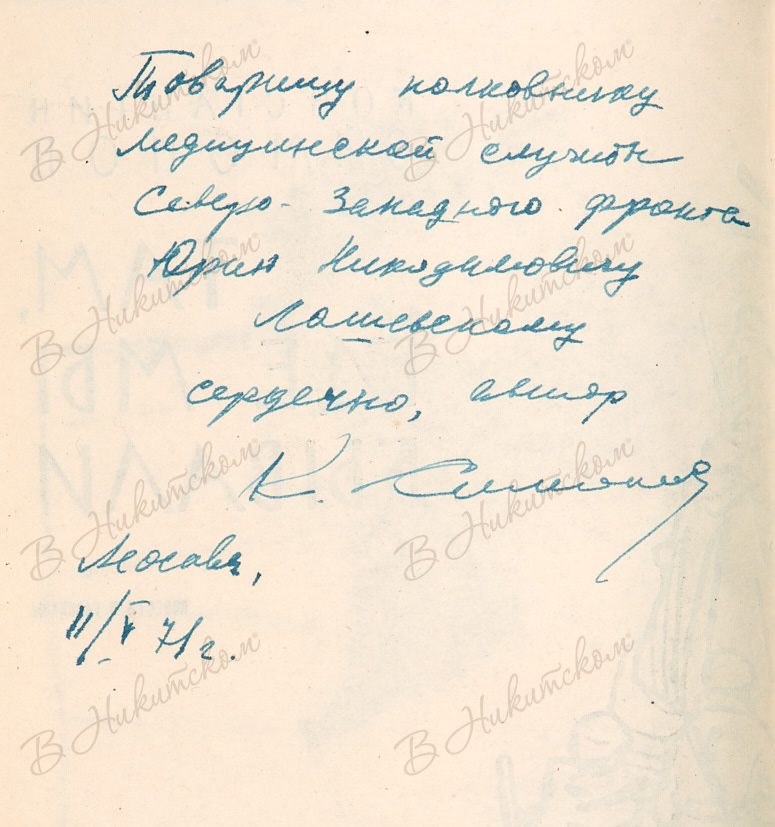 Товарищу полковнику
медицинской службы
Северо-Западного фронта
Юрию Никодимовичу
Лошевскому
сердечно, автор
К. Симонов
Москва,
11/V 71 г.
В Никитском
В Никитском
В Никитском
В Никитском
В Никитском
В Никитском
В Никитском
В Никитском